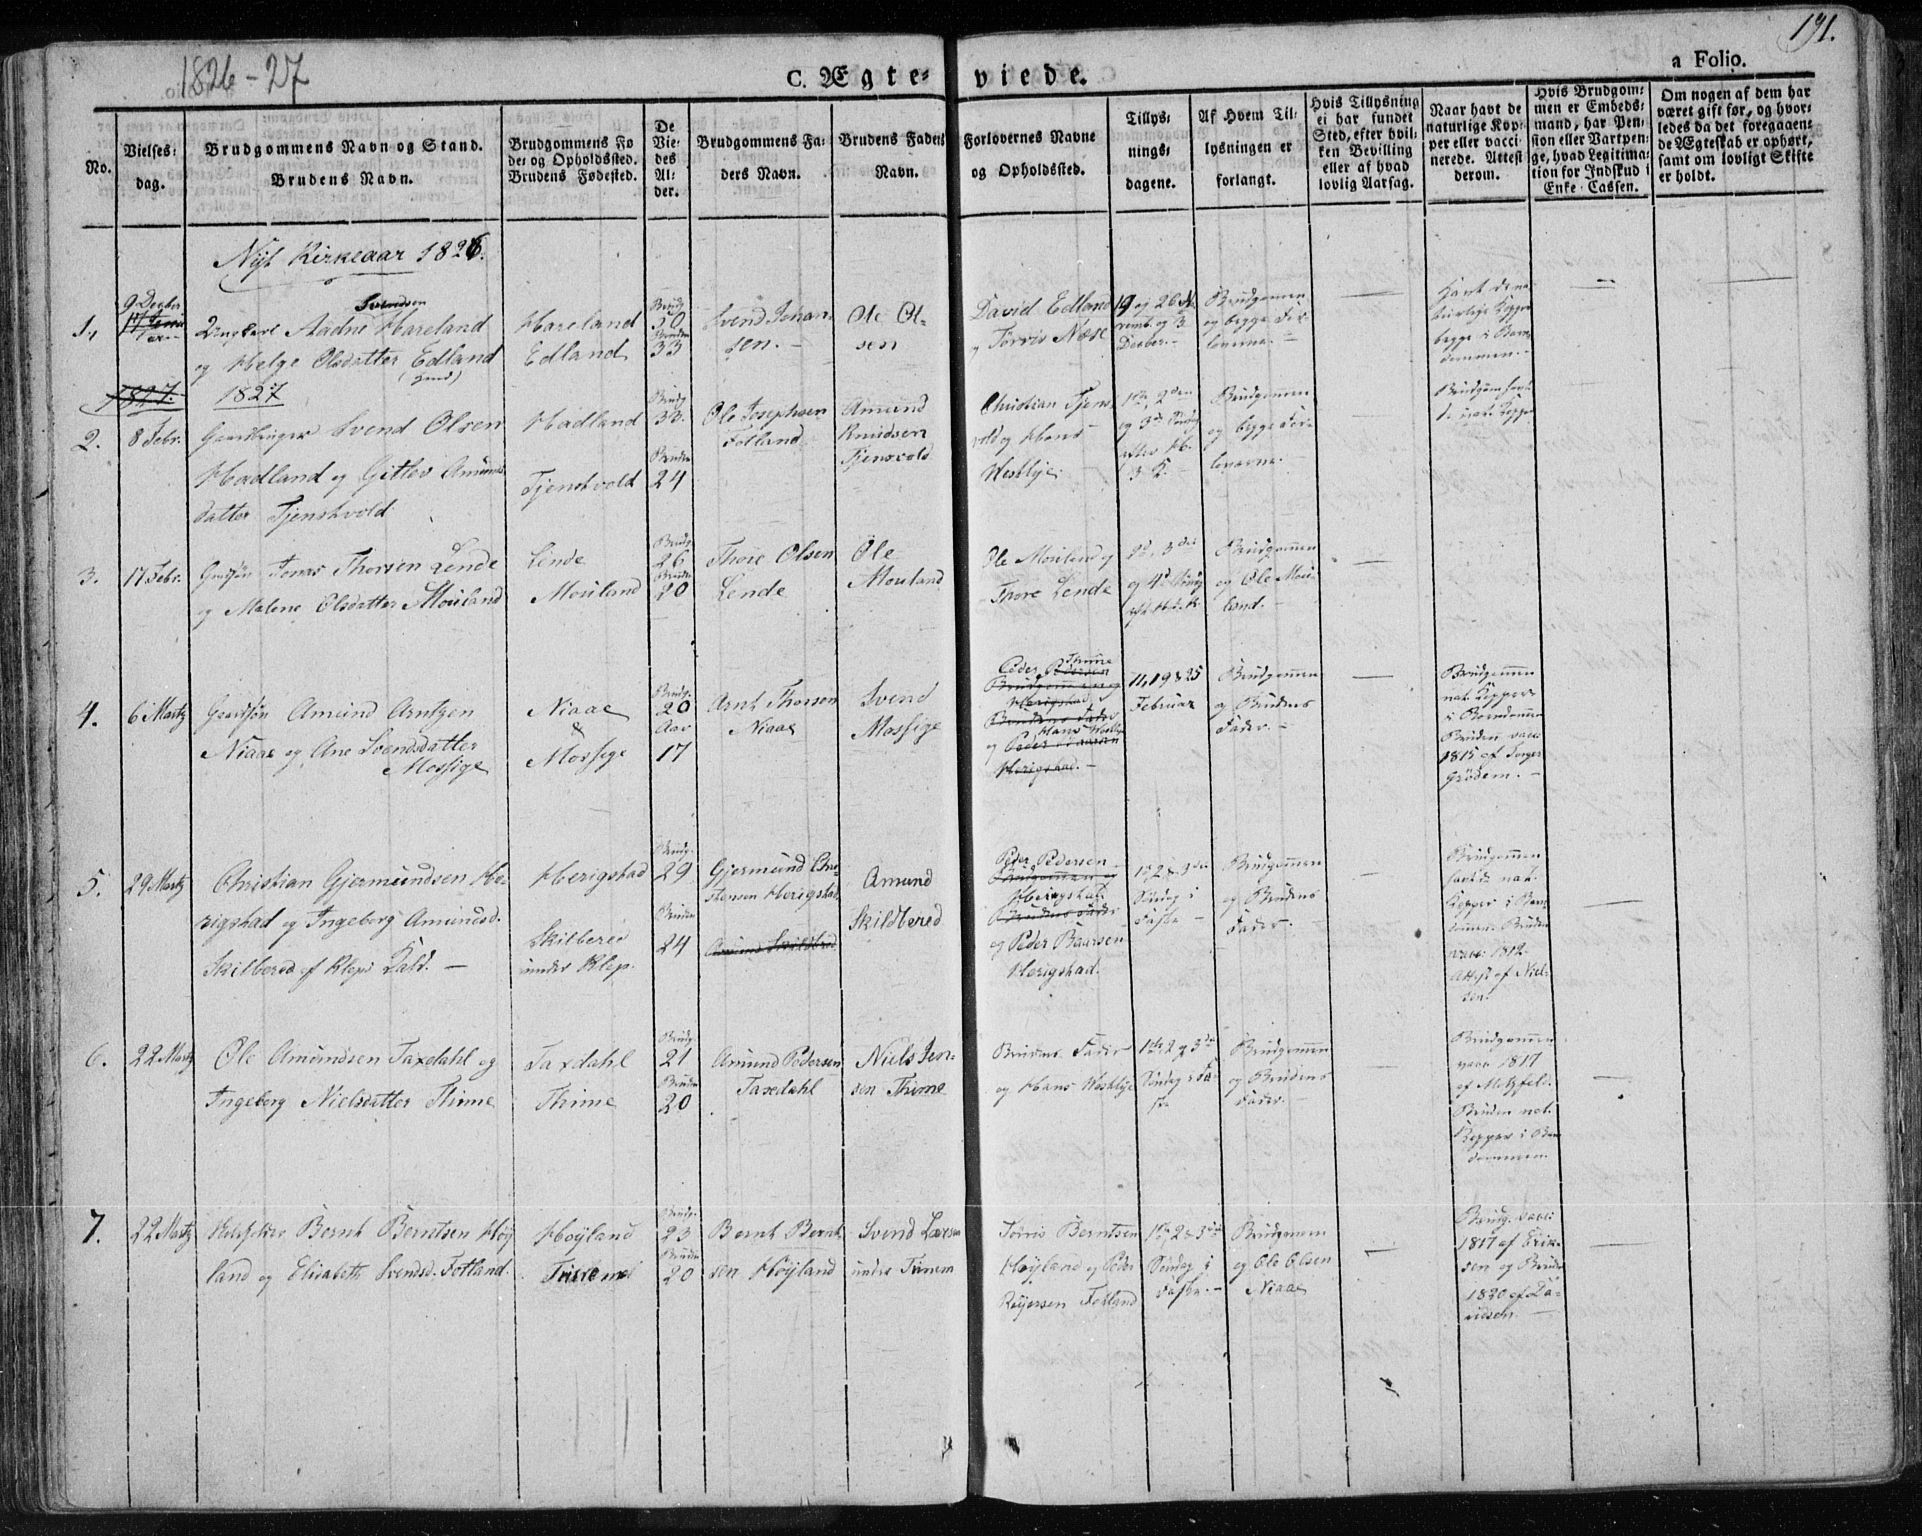 1826-27
C. Ægteviede.
a Folio.
191.
No.
Vielsesdag.
Brudgommens Navn og Stand.
Brudens Navn.
Brudgommens Føde- og Opholdssted.
Brudens Fødested.
De Viedes Alder.
Brudgommens Faders Navn.
Brudens Faders Navn.
Forlovernes Navne og Opholdssted.
Tillysningsdagene.
Af Hvem Tillysningen er forlangt.
Hvis Tillysning ei har fundet Sted, efter hvilken Bevilling eller af hvad lovlig Aarsag.
Naar havt de naturlige Kopper eller vaccinerede. Attest derom.
Hvis Brudgommen er Embedsmand, har Pension eller Vartpenge, hvad Legitimation for Indskud i Enke-Cassen.
Om nogen af dem har været gift før, og hvorledes da det foregaaende Ægteskab er ophørt, samt om lovligt Skifte er holdt.
Nyt Kirkeaar 1826.
1.
9 Decber
Svendsen
Ungkarl Aadne Hareland
og Helge Olsdatter Edland
Hareland
Edland
Brudg. 30
Bruden 33
Svend Johansen.
Ole Olsen
David Edland
og Torris Næse
19 og 26 Novemb. og 3 Decber.
Brudgommen og begge Forloverne.
Havt de naturlige Kopper begge i Barndommen.
1827.
1827
2.
8 Febr.
Gaardbruger Svend Olsen
Hadland og Gitlov Amundsdatter Tjenshvold
Hadland
Tjenshvold
Brudg. 33.
Bruden 24
Ole Josephsen
Fotland
Amund
Knudsen
Tjensvold
Christian Tjensvold og Hans
Westlye.
Brudgommen og begge Forloverne.
3.
17 Febr.
Jonas Thorsen Lende
og Malene Olsdatter Mouland
Lende
Mouland
Brudg. 26
Bruden 20
Thore Olsen
Lende
Ole
Mouland
Ole Mouland og
Thore Lende
Brudgommen og Ole Mouland.
4.
6 Martz
Gaardsøn Amund Arntzen
Niaae og Ane Svendsdatter
Mossige
Niaae
&
Mossige
Brudg. 20
Aar
17
Arnt Thorsen
Niaae
Svend
Mossige
Peder Pedersen Thime
Brudgommen og
Herigstad
Brudens Fader
og Hans Westlye
Herigstad.
11, 19 & 25
Februar
Brudgommen og Brudens Fader.
Brudgommen nat. Kopper i Barndommen Bruden vacc. 1815 af
Grødem.
5.
29 Martz
Christian Gjermundsen Herigstad og Ingeborg Amundsd.
Skilbered af Kleps Kald.
Herigstad
Skilbered
under Klep.
Brudg. 29
Bruden 24
Gjermund Christensen Herigstad
Amund Skildbred
Amund
Skildbered
Peder Pedersen
Brudgommen og
Herigstad
Brudens Fader
og Peder Baarsen
Herigstad.
1ste 2 & 3die
Søndag i
Faste.
Brudgommen og Brudens Fader.
Brudgommen havt de nat. Kopper i Barndommen. Bruden vacc. 1812. Attest af Nielsen.
6.
22 Martz
Ole Amundsen Taxdahl og
Ingeborg Nielsdatter Thime
Taxdahl
Thime
Brudg. 21
Bruden 20
Amund Pedersen
Taxedahl
Niels Jensen Thime
Brudens Fader
og Hans Westlye
1ste 2 og 3die
Søndag i Faste
Brudgommen og Brudens Fader.
Brudgommen vacc. 1817 af Metzfeld. Bruden nat. Kopper i Barndommen.
7.
22 Martz
Bernt Berntsen Høyland og Elisabeth Svendsd. Fotland.
Høyland
Brudg. 23
Bruden 20
Bernt Berntsen Høyland
Svend Larsen
under Timem
Torris Berntsen
Høyland og Peder
Reyersen Fotland
1ste, 2 & 3die
Søndag i
Faste.
Brudgommen og Ole Olsen Niaae
Brudg. vacc: 1817 af Eriksen og Bruden 1820 af Davidsen.